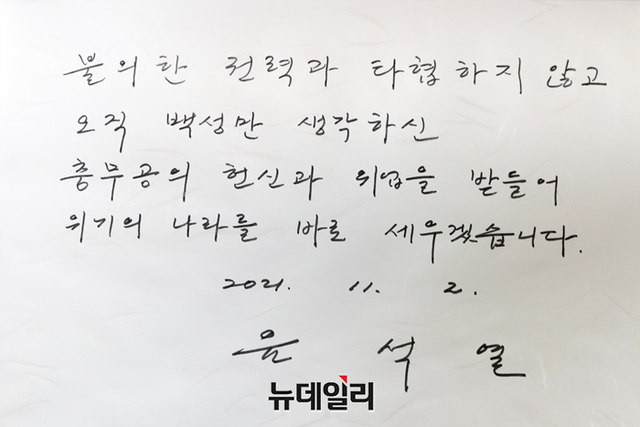 불의한 권력과 타협하지 않고
오직 백성만 생각하신
충무공의 헌신과 위업을 받들어
위기의 나라를 바로 세우겠습니다.
2021. 11. 2.
윤 석 열
뉴데일리